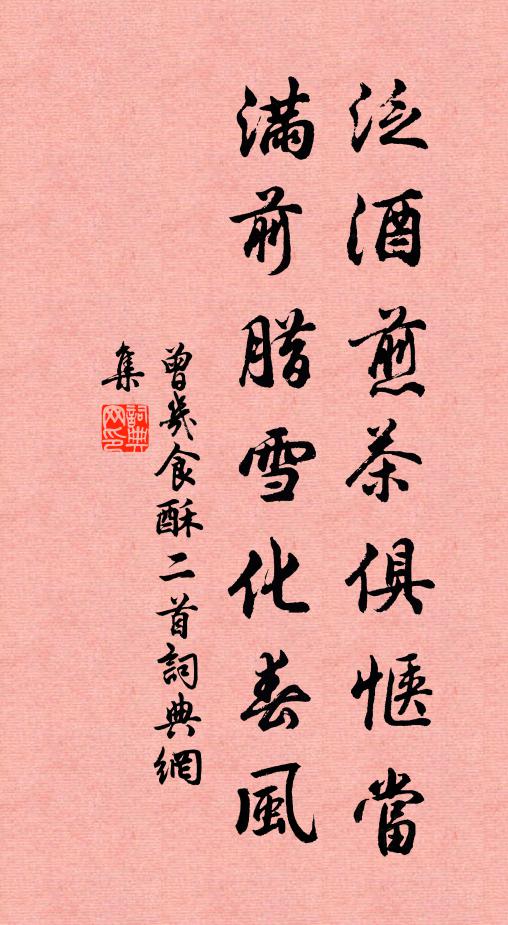 泛酒煎茶俱惬當
滿前腊雪化春風
曾幾食酥二首詞典網
集
詞典網印